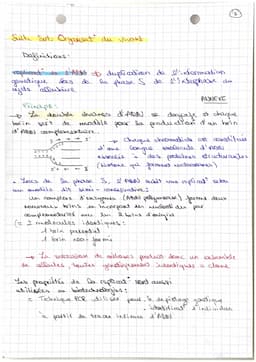 Définitions:
réplicat° de l'ADN => duplication de l'information
génétique lors de la phase S de l'interphase du
cycle cellulaire
ANNEXE
Principe:
-> La double chaînes d'ADN se dissocie et chaque
brin sert de modèle pour la production d'un brin
d'ADN complémentaire.
-> Chaque chromatide est constituée
d'une longue molécule d'ADN
associée à des protéines structurales
• Lors de la phase S, l'ADN subit une réplicat° selon
un modèle dit semi-conservatif:
Un complexe d'enzymes (ADN polymérase) forme deux
nouveaux brins en incorporant des nucléotides par
complémentarité aux 2 brins d'origine
(= 2 molécules identiques:
1 brin parental
1 brin néo-formé
-> La succession de mitoses produit donc un ensemble
de cellules, toutes génétiquement identiques = clone
Les propriétés de la réplicat° sont aussi
utilisées en biotechnologies:
• Technique PCR utilisée pour: le dépistage génétique
identificat° d'individus
à partir de traces infimes d'ADN